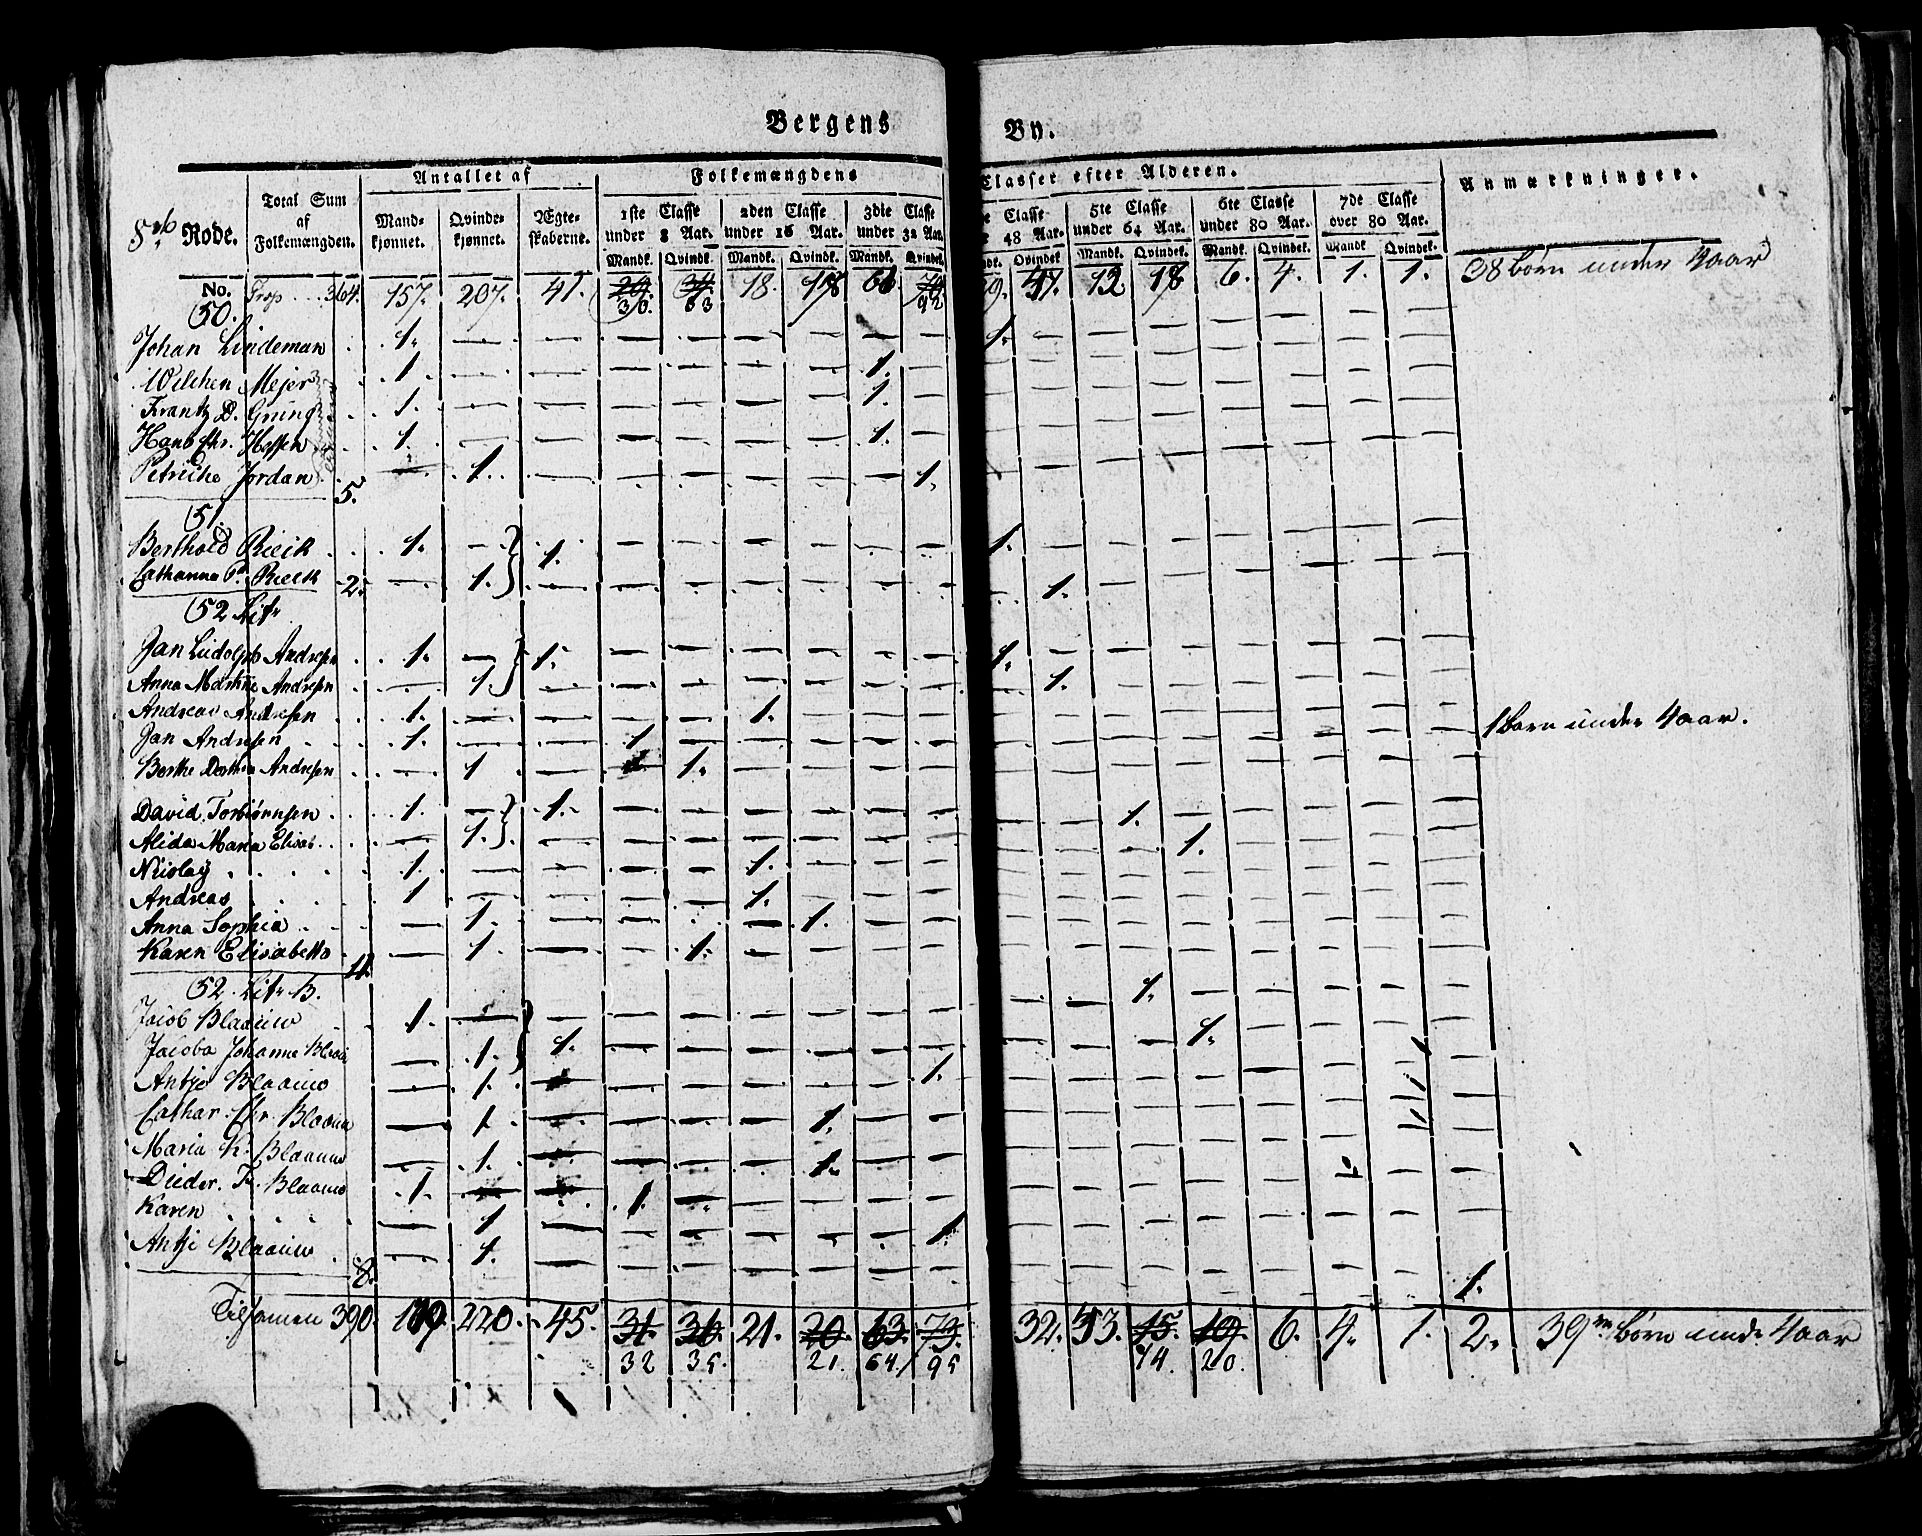 Bergens By.
8de Rode.
Total Sum af Folkemængden.
Antallet af
Mandkjønnet. Qvindekjønnet. Ægteskaberne.
Folkemængdens Classer efter Alderen.
1ste Classe under 8 Aar. 2den Classe under 16 Aar. 3die Classe under 32 Aar. Classe 48 Aar. 5te Classe under 64 Aar. 6te Classe under 80 Aar. 7de Classe over 80 Aar.
Mandk. Qvindk. Mandk. Qvindk. Mandk. Qvindek. ndk. Qvindek Mandk. Qvindek. Mandk. Qvindek. Mandk Qvindek.
Anmærkninger.
No. 364. 157. 207. 41. 29. 34. 18. 6. 4. 1. 1. 38 børn under 4 aar
30. 33 92
50.
Johan Lindeman 1. 1.
Wilchen Mejer 1. 1.
Frantz D. Gring 1. 1.
Hans Chr. Hessen 1. 1.
Petriche Jordan 5. 1. 1.
51.
Berthold Rieck 1. 1. 1.
Catharina P. Rieck 2. 1. 1.
52 Litr
Jan Ludolph Andresen 1. 1. 1.
Anna Martine Andresen 1. 1.
Andreas Andresen 1. 1.
Jan Andresen 1. 1 1 børn under 4 aar.
Berthe Dorthea Andresen 1 1.
David Torbiørnsen 1. 1. 1.
Alida Maria Elisab. 1. 1.
Nicolay 1. 1.
Andreas 1 1.
Anna Sophia 1. 1.
Karen Elisabetha 11. 1. 1.
52. Litr B.
Jacob Blaauw 1. 1.
Jacoba Johanne Blaau 1. 1. 1.
Antje Blaauw 1. 1.
Cathar. Chr. Blaauw 1. 1.
Maria K. Blaauw 1. 1.
Dieder. Fr. Blaauw 1. 1.
Karen 1 1
Antje Blaauw 8. 1. 1.
Tilsamen 390. 220. 45. 31. 36. 21. 20. 63. 73. 32. 53. 15. 19. 6. 4. 1. 2. 39 børn under 4 aar
32 35. 21. 64. 95 14. 20.